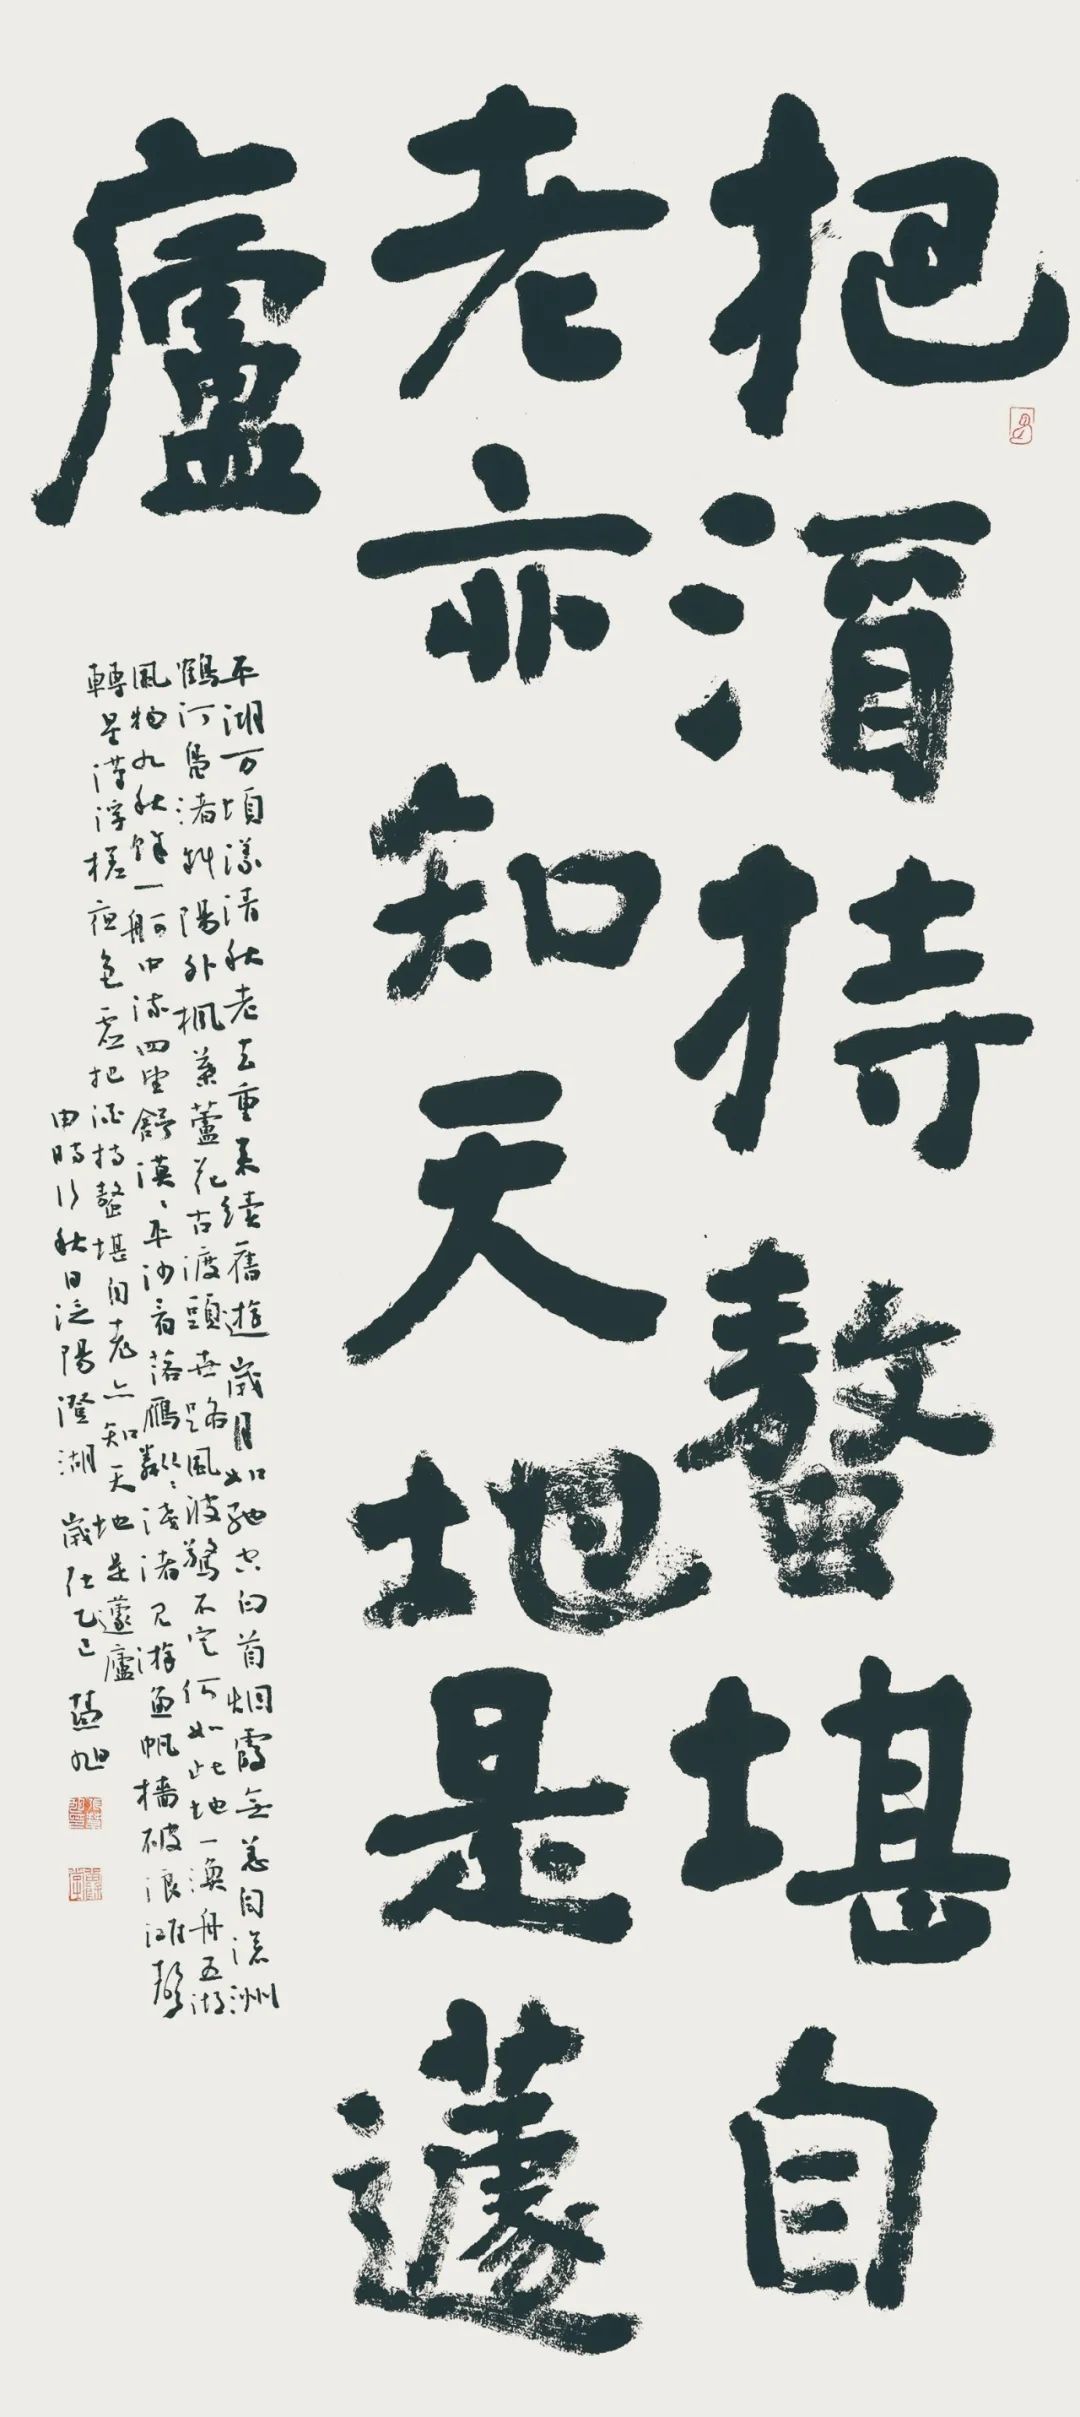 把酒持螯堪自
老亦知天地是蘧
廬
平湖万頃漾清秋老去重來續舊遊歲月如馳空白首烟霞無恙自滄洲
鶴汀鳧渚斜陽外楓葉蘆花古渡頭世路風波驚不定何如此地一漁舟五湖
風物九秋餘一舸中流四望舒漠〻平沙看落雁粼〻淺渚見游魚帆檣破浪灘聲
轉星漢浮槎夜色虛把酒持螯堪自老亦知天地是蘧廬
申時行秋日泛陽澄湖 歲在乙巳 慧旭